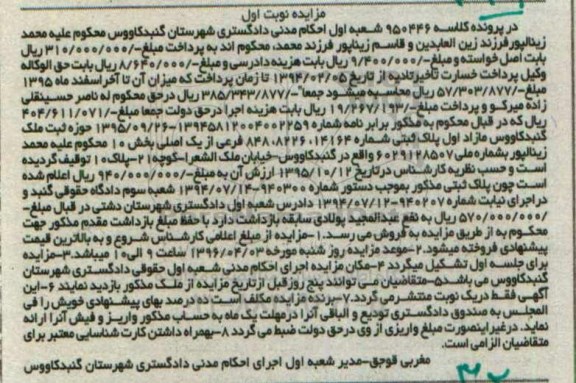 مزایده نوبت اول
در پرونده کلاسه ۹۵۰۴۴۶ شعبه اول احکام مدنی دادگستری شهرستان گنبدکاووس محکوم علیه محمد
زینالپور فرزند زین العابدین و قاسم زیناپور فرزند محمد، محکوم اند به پرداخت مبلغ-/۳۱۰/۰۰۰/۰۰۰ ریال
بابت اصل خواسته و مبلغ-/۹/۴۰۰/۰۰۰ ریال بابت هزینه دادرسی و مبلغ-/۸/۶۴۰/۰۰۰ ریال بابت حق الوکاله
وکیل پرداخت خسارت تأخیر تادیه از تاریخ ۱۳۹۴/۰۲/۰۵ تا زمان پرداخت که میزان آن تا آخر اسفند ماه ۱۳۹۵
مبلغ-/۵۷/۳۰۳/۸۷۷ ریال محاسبه میشود جمعا"-/۳۸۵/۳۴۳/۸۷۷ ریال درحق محکوم له ناصر حسینقلی
زاده میرکو و پرداخت مبلغ-/۱۹/۲۶۷/۱۹۳ ریال بابت هزینه اجرا درحق دولت جمعا مبلغ-/۴۰۴/۶۱۱/۰۷۱
ریال که در قبال محکوم به مذکور برابر نامه شماره ۱۳۹۴۵۸۱۲۰۰۴۰۰۲۲۵۹-۱۳۹۵/۰۹/۲۶ حوزه ثبت ملک
گنبدکاووس مازاد اول پلاک ثبتی شماره ۸۴۸۰۸۲۲۶۰۱۴۱۶۴ فرعی از یک اصلی بخش ۱۰ محکوم علیه محمد
زینالپور بشماره ملی ۶۰۲۹۱۲۸۵۰۷ واقع در گنبدکاووس-خیابان ملک الشعرا-کوچه۲۱-پلاک۱۰ توقیف گردیده
است و حسب نظریه کارشناس در تاریخ ۱۳۹۵/۱۰/۱۲ ارزش آن به مبلغ-/۹۴۰/۰۰۰/۰۰۰ ریال اعلام شده
است چون پلاک ثبتی مذکور بموجب دستور شماره ۹۴۰۳۰۰-۱۳۹۴/۰۷/۱۴ شعبه سوم دادگاه حقوقی گنبد و
در اجرای نیابت شماره ۹۴۰۲۰۷۰-۱۳۹۴/۰۷/۱۲ دادرس شعبه اول دادگستری شهرستان دشتی در قبال مبلغ-
/۵۷۰/۰۰۰/۰۰۰ ریال به نفع عبدالمجید پولادی سابقه بازداشت دارد با حفظ مبلغ بازداشت مقدم مذکور جهت
محکوم به از طریق مزایده به فروش می رسد.۱-مزایده از مبلغ اعلامی کارشناس شروع و به بالاترین قیمت
پیشنهادی فروخته میشود.۲-موعد مزایده روز شنبه مورخه ۱۳۹۶/۰۴/۰۳ ساعت ۹ الی ۱۰ میباشد.۳-مزایده
برای جلسه اول تشکیل میگردد ۴-مکان مزایده اجرای احکام مدنی شعبه اول حقوقی دادگستری شهرستان
گنبدکاووس می باشد۵-متقاضیان می توانند پنج روز قبل از تاریخ مزایده از ملک مذکور بازدید نمایند ۶-این
آگهی فقط دریک نوبت منتشر می گردد.۷-برنده مزایده مکلف است ده درصد بهای پیشنهادی خویش را فی
المجلس به صندوق دادگستری تودیع و الباقی آنرا درمهلت یک ماه به حساب مذکور واریز و فیش آنرا ارائه
نماید. درغیر اینصورت مبلغ واریزی از وی درحق دولت ضبط می گردد ۸-بهمراه داشتن کارت شناسایی معتبر برای
متقاضیان الزامی است.
مغربی قوجق-مدیر شعبه اول اجرای احکام مدنی دادگستری شهرستان گنبدکاووس